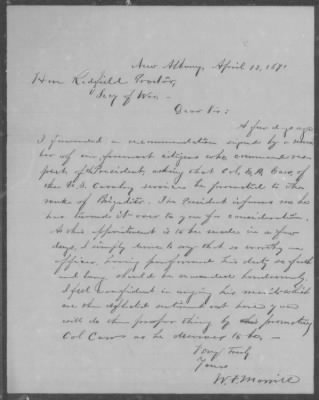 New Albany, April 12, 1891
Hon Redfield Proctor,
Secy of War
Dear Sir:
A few days ago
I forwarded a recommendation signed by a num
ber of our foremost citizens who command res
pect of the President, asking that Col. E. A. Carr of
the U.S. Cavalry service be promoted to the
rank of Brigadier. The President informs me he
has turned it over to you for consideration.
As this appointment is to be made in a few
days, I simply write to say that so worthy an
officer, having performed his duty so faith
and long should be rewarded handsomely
I feel confident in urging his merits which
are the upheld sentiment out here you
will do the proper thing by promoting
Col Carr as he deserves to be.
Very truly
Yours
W. F. Morrill